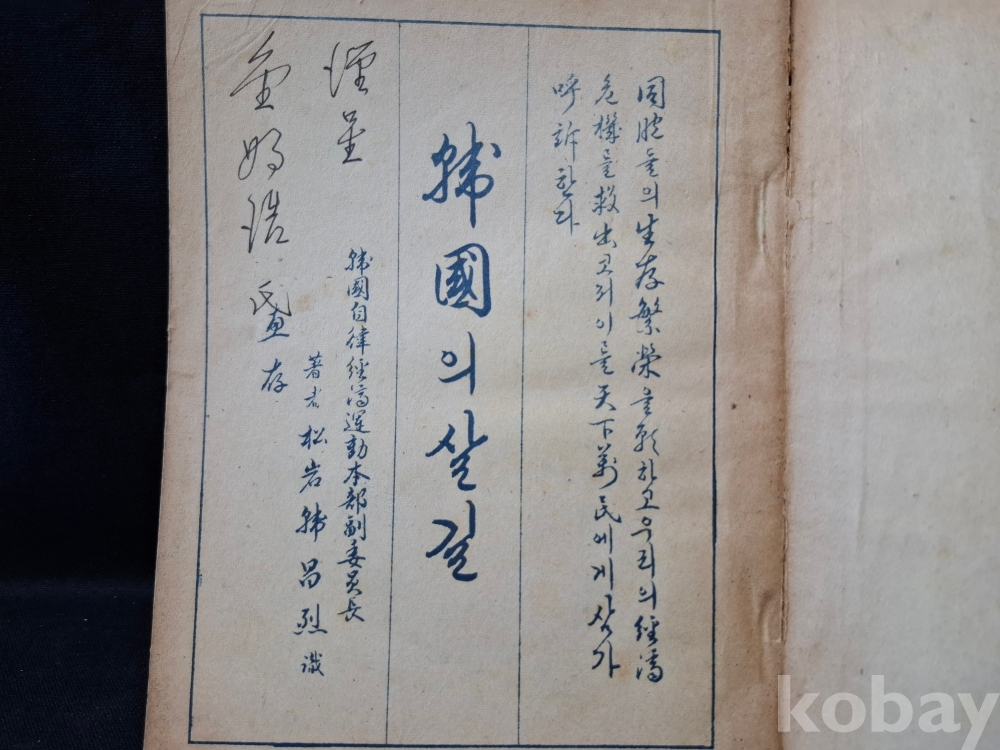 同胞들의生存繁榮을願하고우리의經濟
危機를救出코저이를天下萬民에게삼가
呼訴한다
韓國의살길
韓國自律經濟運動本部副委員長
著者 松岩 韓昌烈 識
謹呈
金 浩氏 存
kobay